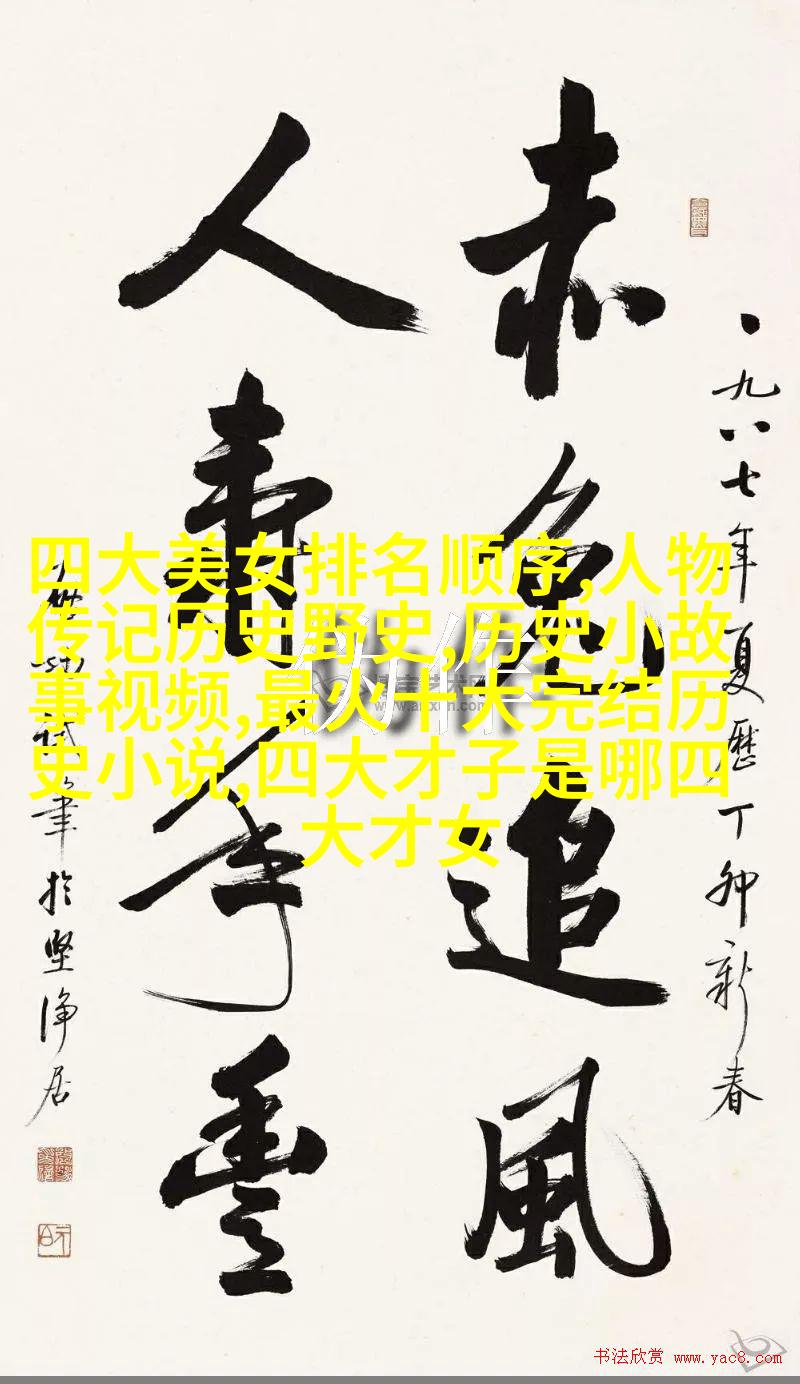 一九八七年夏歷丁卯新春
赤兔追風
人壽年豐
試筆於堅淨居
四大美女排名顺序,人物
传记历史野史,历史小故
事视频,最火十大完结历
史小说,四大才子是哪四
大才女
伪作
书法欣赏 www.yac8.com